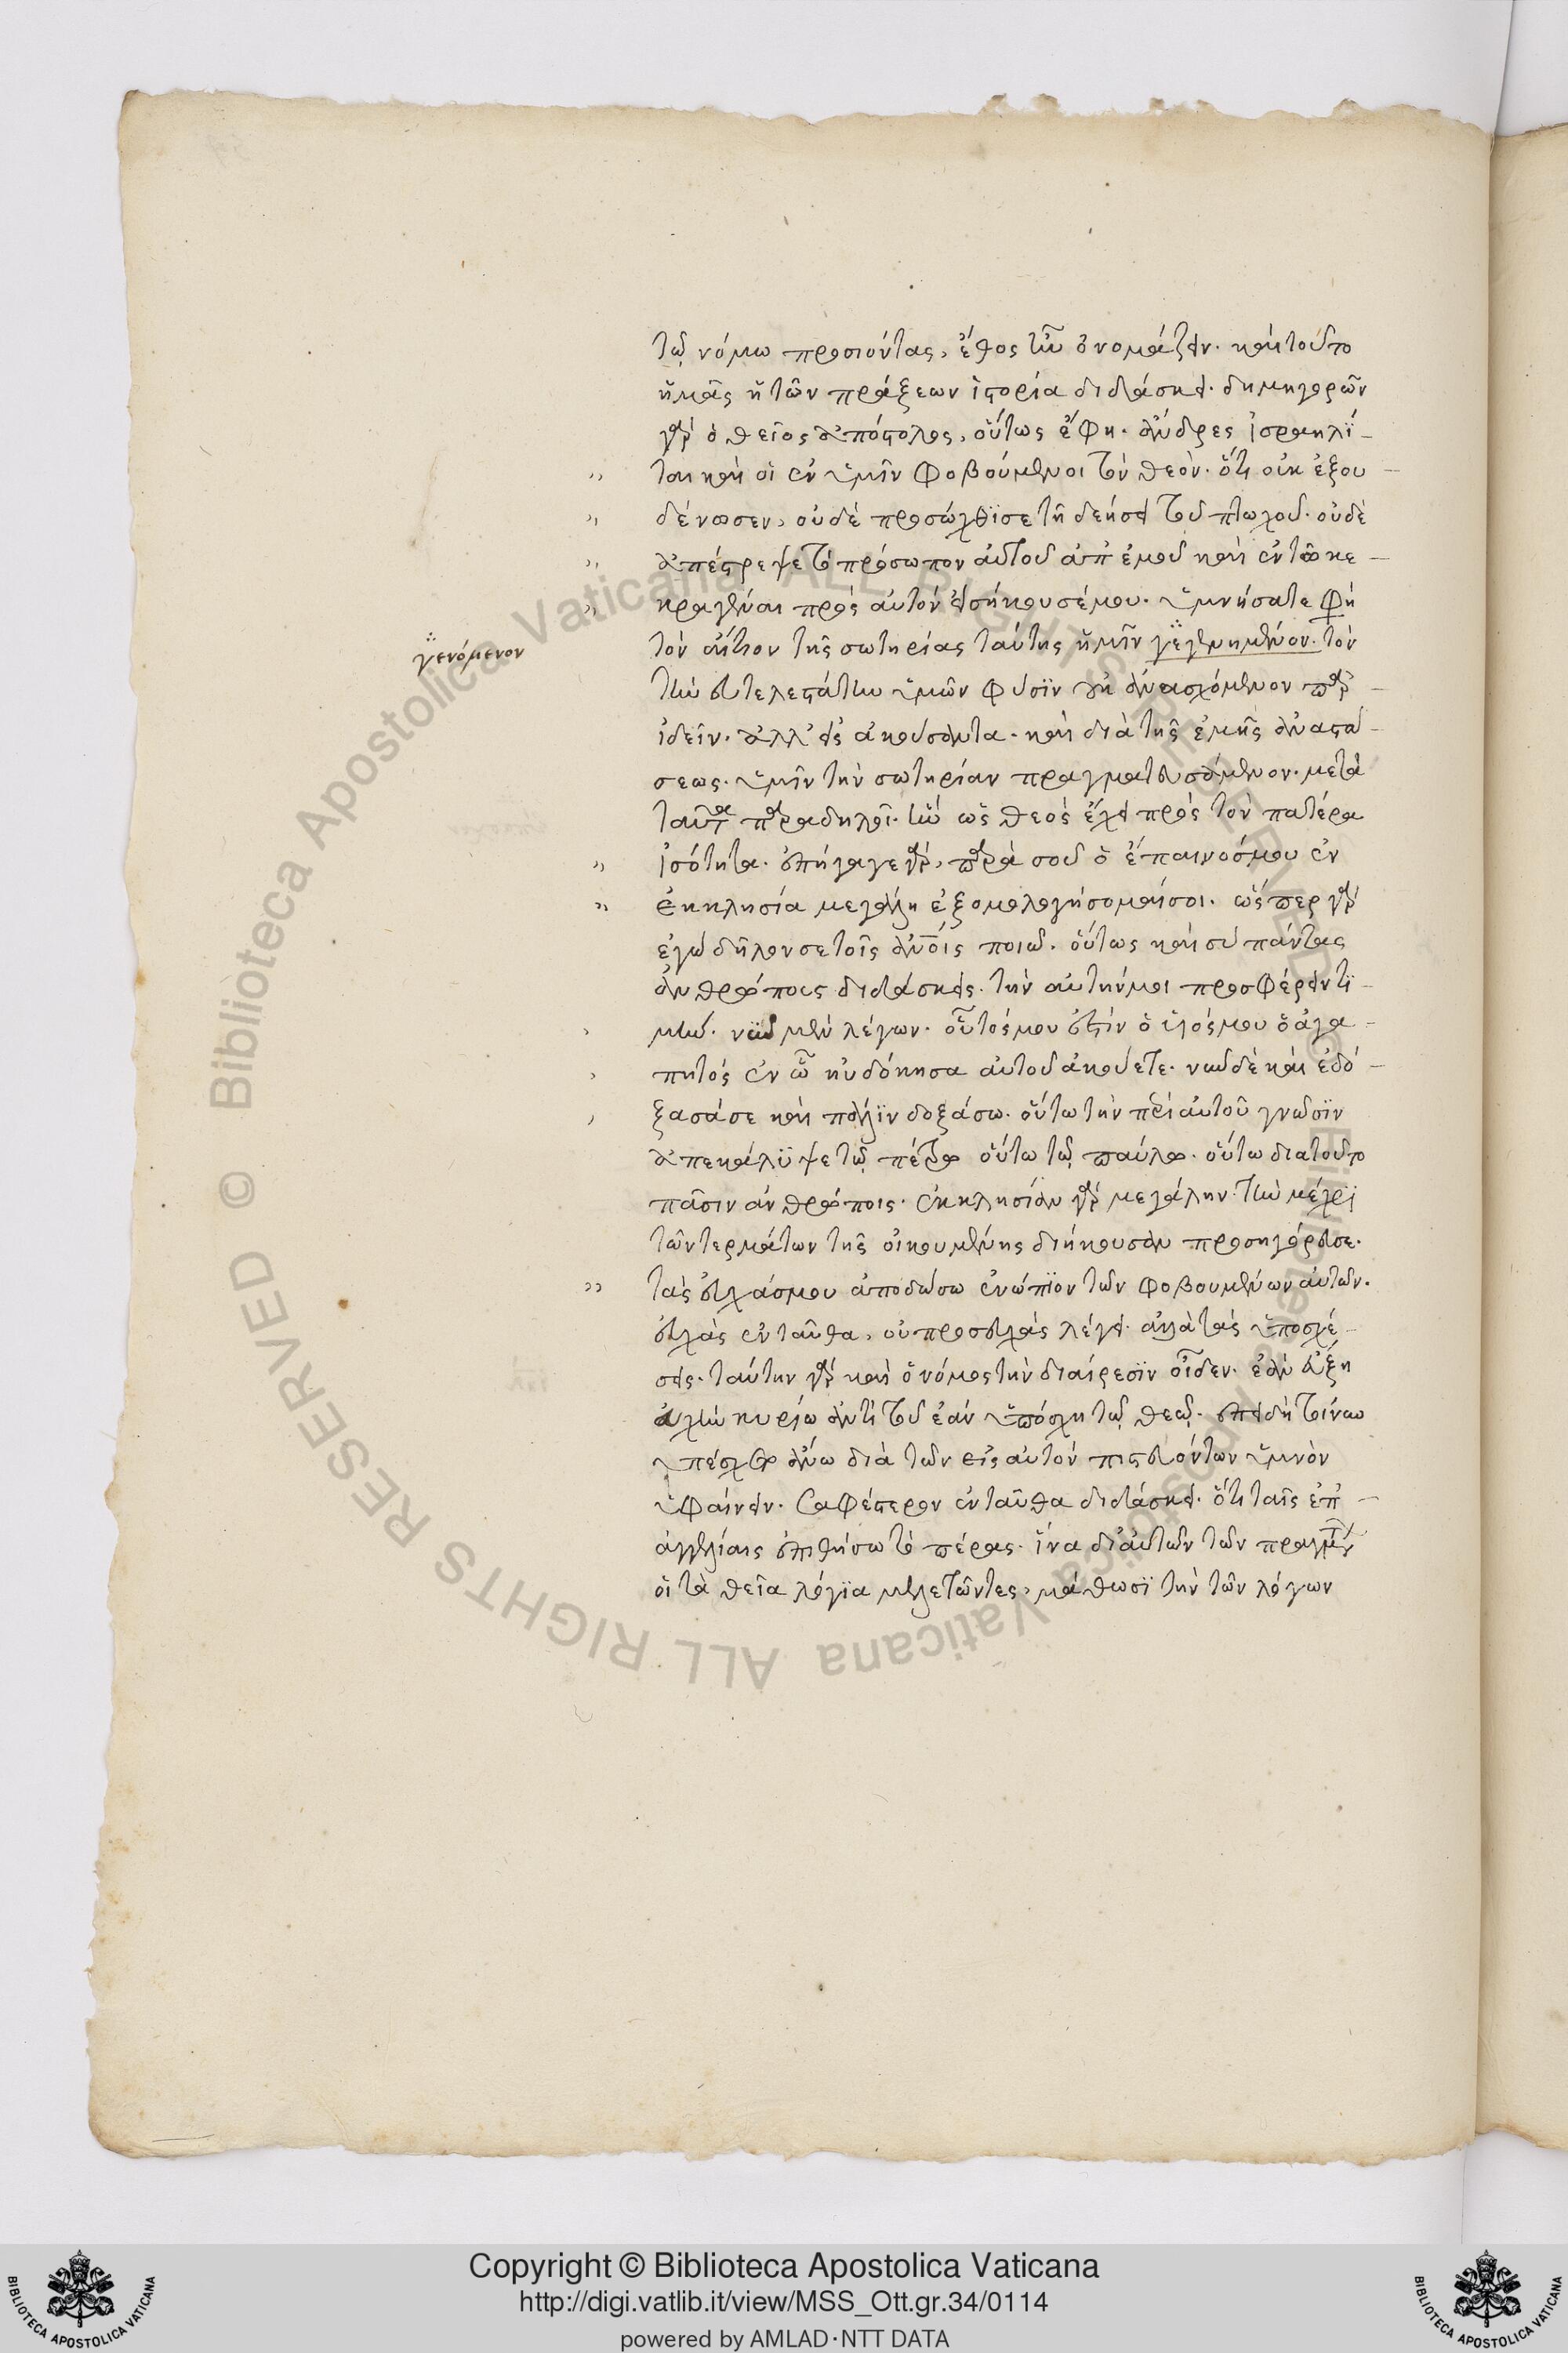 τῷ νόμω προσιόντας, ἔθος ἦν ὀνομάζειν. καὶ τοῦτο
ἡμᾶς ἡ τῶν πράξεων ἱστορία διδάσκει. δημηγορῶν
γὰρ ὁ θεῖος ἀπόστολος, οὕτως ἔφη. ἄνδρες ἰσραηλῖ-
ται καὶ οἱ ἐν ὑμῖν φοβούμενοι τὸν θεόν. ὅτι οὐκ ἐξου-
δένωσεν, οὐδὲ προσώχθϊσε τῆ δεήσει τοῦ πτωχοῦ. οὐδὲ
ἀπέστρεψε τὸ πρόσωπον αὐτοῦ ἀπ' ἐμοῦ καὶ ἐν τῶ κε-
κραγέναι πρὸς αὐτὸν εἰσήκουσέ μου. ὑμνήσατε φη
τὸν αἴτιον τῆς σωτηρίας ταύτης ἡμῖν γεγενημένον. τὸν
γενόμενον
τὴν εὐτελεστάτην ὑμῶν φύσϊν οὐκ ἀνασχόμενον παρ-
ιδεῖν. ἀλλ' εἰσακούσαντα. καὶ διὰ τῆς ἐμῆς ἀναστά-
σεως. ὑμῖν τὴν σωτηρίαν πραγματευσάμενον. μετὰ
ταῦτα παραδηλοῖ. ἣν ὡς θεὸς ἔχει πρὸς τὸν πατέρα
ἰσότητα. ἐπήγαγε γὰρ, παρὰ σοῦ ὁ ἔπαινοσμου ἐν
ἐκκλησία μεγάλη ἐξομολογήσομαίσοι. ὥσπερ γὰρ
ἐγὼ δῆλον σε τοῖς ἀνοις ποιῶ. οὕτως καὶ σὺ πάντας
ἀνθρώπους διδάσκεις. τὴν αὐτήν μοι προσφέρειν τι-
μήν. νῦν μὲν λέγων. οὗτός μου ἐστίν ὁ υἱός μου ὁ ἀγα-
πητός ἐν ὧ ηὐδόκησα αὐτοῦ ἀκούετε. νῦν δὲ καὶ ἐδό-
ξασά σε καὶ πάλϊν δοξάσω. οὕτω τὴν περὶ αὐτοῦ γνῶσϊν
ἀπεκάλϋψε τῷ πέτρω οὕτω τῷ παύλω. οὕτω διατοῦτο
πᾶσιν ἀνθρώποις. ἐκκλησίαν γὰρ μεγάλην. τὴν μέχρϊ
τῶν τερμάτων τῆς οἰκουμένης διήκουσαν προσηγόρευσε.
τὰς εὐχάς μου ἀποδώσω ἐνώπϊον τῶν φοβουμένων αὐτῶν.
εὐχὰς ἐνταῦθα, οὐ προσευχὰς λέγει. ἀλλὰ τὰς ὑποσχέ-
σεις. ταύτην γὰρ καὶ ὁ νόμος τὴν διαίρεσϊν οἶδεν. ἐὰν εὔξη
εὐχὴν κυρίω ἀντὶ τοῦ ἐὰν ὑπόσχη τῷ θεῷ. ἐπειδὴ τοίνυν
ὑπέσχετο ἄνω διὰ τῶν εἰς αὐτὸν πιστευόντων ὕμνον
ὑφαίνειν. Σαφέστερον ἐνταῦθα διδάσκει. ὅτι ταῖς ἐπ-
αγγελίαις ἐπιθήσω τὸ πέρας. ἵνα δι' αὐτῶν τῶν πραγμάτων
οἱ τὰ θεῖα λόγϊα μελετῶντες, μάθωσϊ τὴν τῶν λόγων
Copyright © Biblioteca Apostolica Vaticana
http://digi.vatlib.it/view/MSS_Ott.gr.34/0114
powered by AMLAD·NTT DATA
© Biblioteca Apostolica Vaticana ALL RIGHTS RESERVED
© Biblioteca Apostolica Vaticana ALL RIGHTS RESERVED
BIBLIOTECA APOSTOLICA VATICANA
BIBLIOTECA APOSTOLICA VATICANA